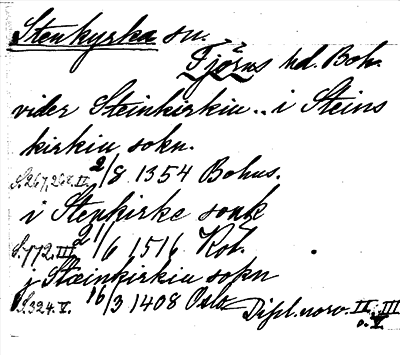 Stenkyrka sn.
Tjörns hd. Boh.
vider Steinkirkiu.. i Steins
kirkiu sokn.
S.267,268.II. 2/8 1354 Bohus.
i Stenkirke sonk
S.772.III. 21/6 1516 Kol.
j Stæinkirkiu sokn
S.324.V. 16/3 1408 Oslo
Dipl. norv. II; III
o. V.